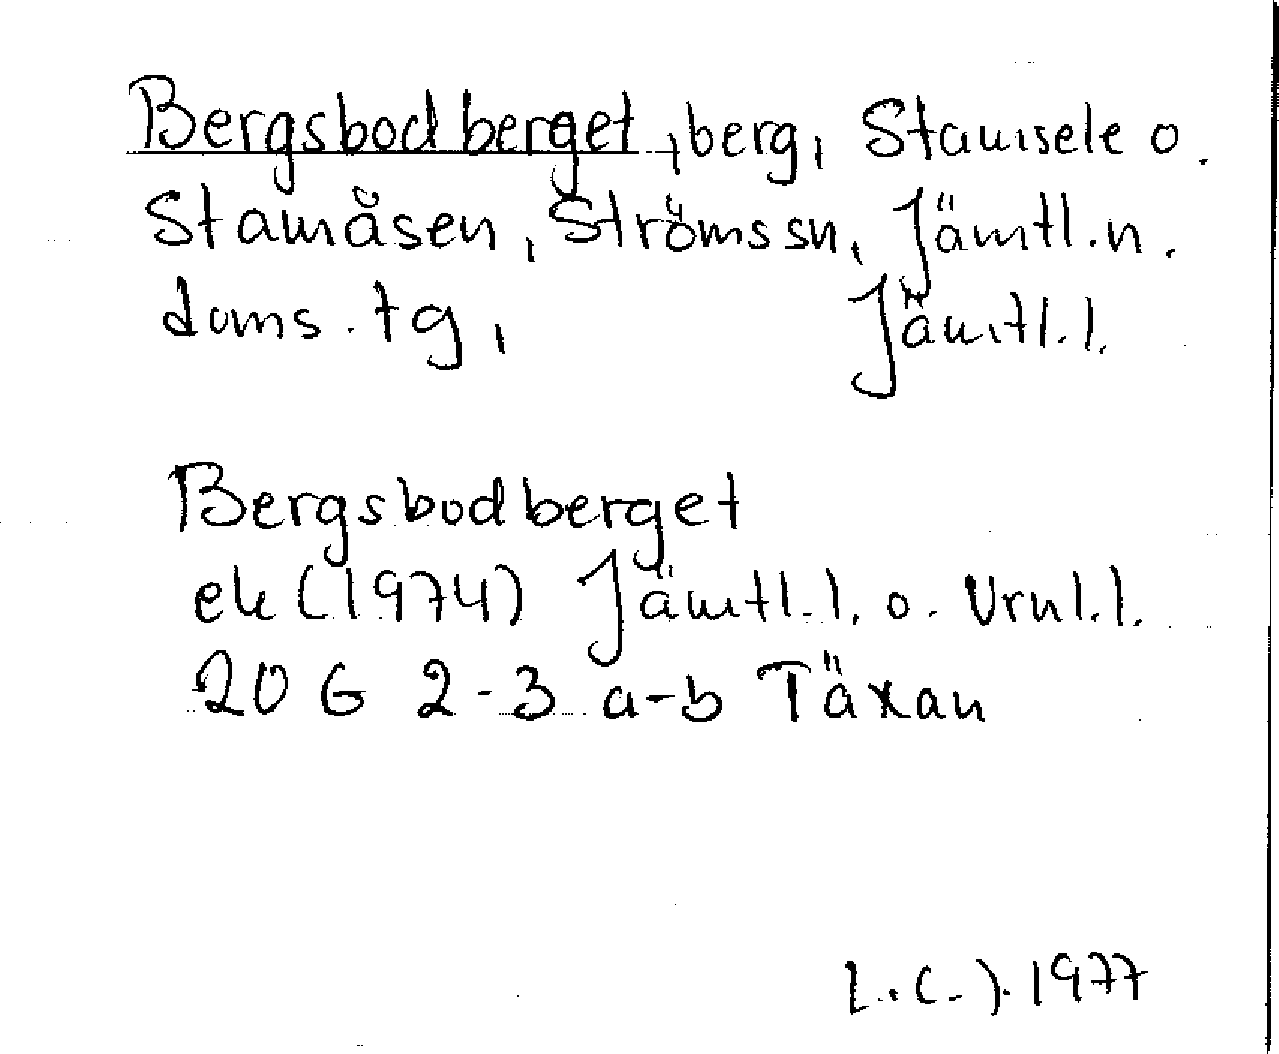 Bergsbodberget, berg, Stamsele o.
Stamåsen, Ströms sn, Jämtl. n.
doms. tg, Jämtl. l.
Bergsbodberget
ek (1974) Jämtl. l. o. Vrml. l.
20 G 2-3 a-b Täxan
1977